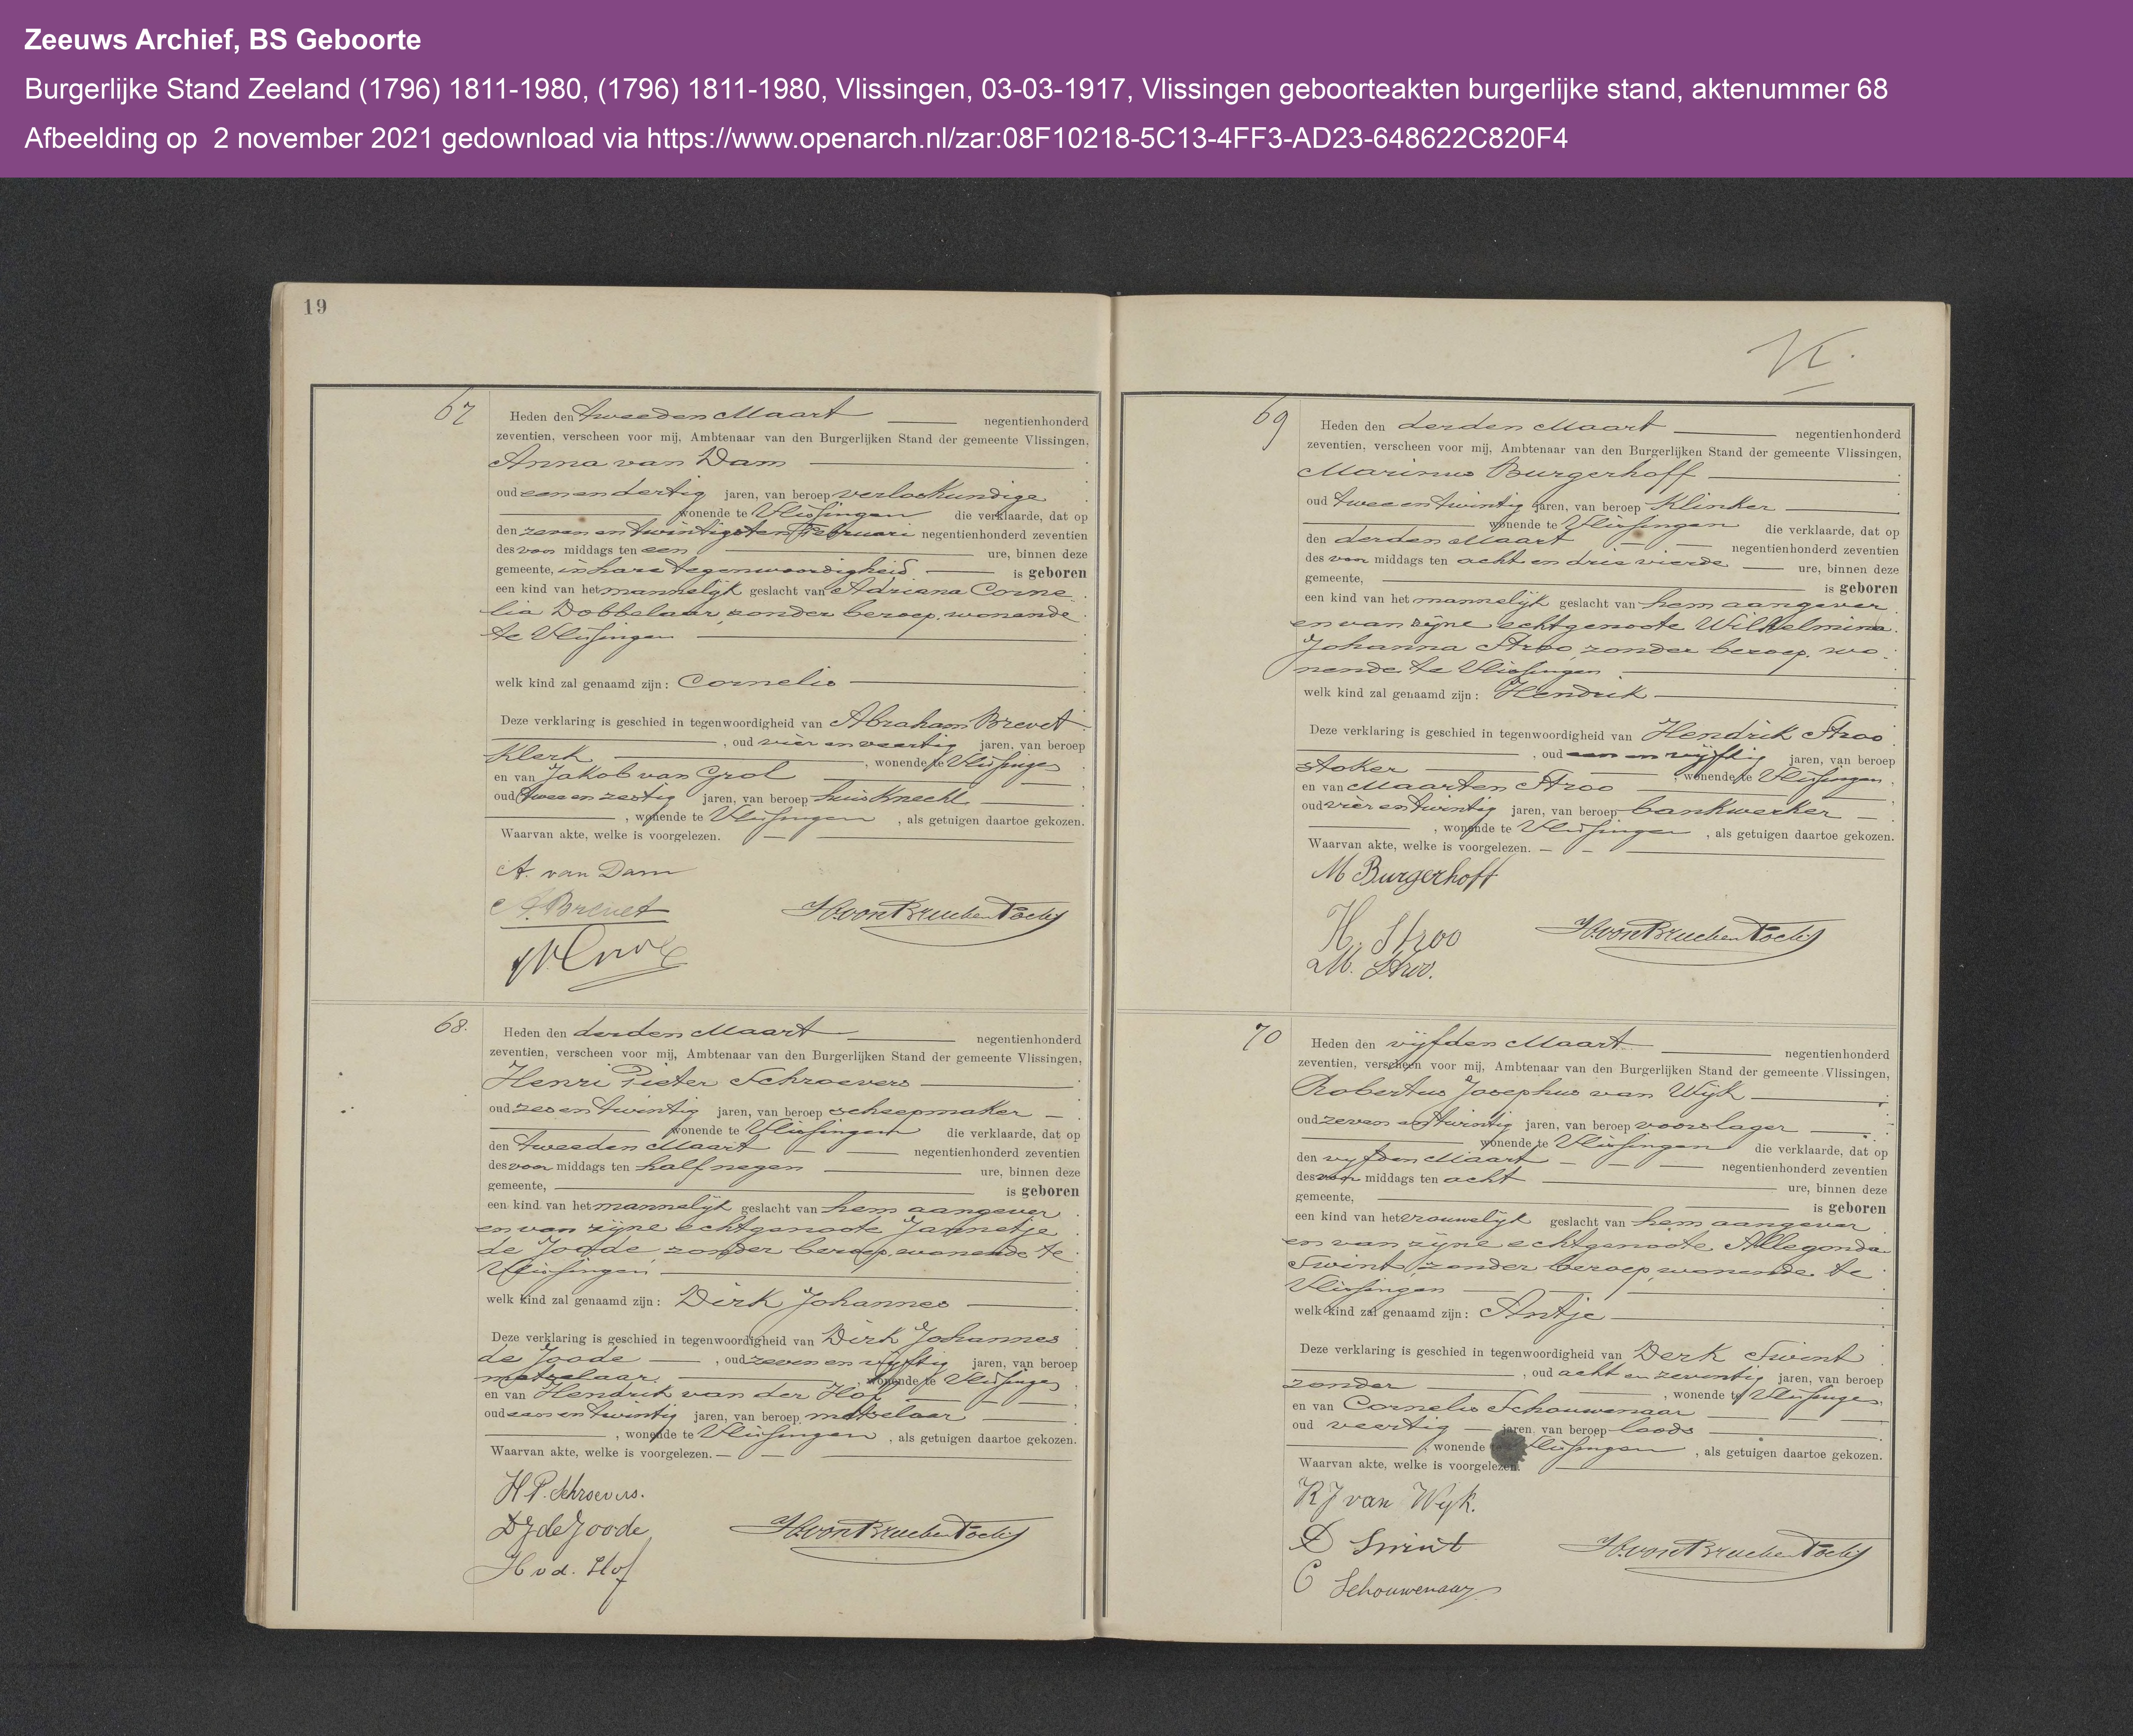 Zeeuws Archief, BS Geboorte
Burgerlijke Stand Zeeland (1796) 1811-1980, (1796) 1811-1980, Vlissingen, 03-03-1917, Vlissingen geboorteakten burgerlijke stand, aktenummer 68
Afbeelding op  2 november 2021 gedownload via https://www.openarch.nl/zar:08F10218-5C13-4FF3-AD23-648622C820F4
19
67
Heden den tweeden Maart negentienhonderd
zeventien, verscheen voor mij, Ambtenaar van den Burgerlijken Stand der gemeente Vlissingen,
Anna van Dam
oud een en dertig jaren, van beroep verloskundige
wonende te Vlissingen die verklaarde, dat op
den zeven en twintigsten Februari negentienhonderd zeventien
des voor middags ten een ure, binnen deze
gemeente, in hare tegenwoordigheid is geboren
een kind van het mannelijk geslacht van Adriana Corne
lia Dobbelaar, zonder beroep, wonende
te Vlissingen
welk kind zal genaamd zijn: Cornelis
Deze verklaring is geschied in tegenwoordigheid van Abraham Brevet
, oud vier en veertig jaren, van beroep
Klerk , wonende te Vlissingen
en van Jakob van Grol
oud twee en zestig jaren, van beroep huisknecht
, wonende te Vlissingen , als getuigen daartoe gekozen.
Waarvan akte, welke is voorgelezen.
A. van Dam
A. Brevet
68.
Heden den derden Maart negentienhonderd
zeventien, verscheen voor mij, Ambtenaar van den Burgerlijken Stand der gemeente Vlissingen,
Henri Pieter Schroevers
oud zes en twintig jaren, van beroep scheepmaker
wonende te Vlissingen die verklaarde, dat op
den tweeden Maart negentienhonderd zeventien
des voor middags ten half negen ure, binnen deze
gemeente, is geboren
een kind van het mannelijk geslacht van hem aangever
en van zijne echtgenoote Jannetje
de Joode, zonder beroep, wonende te
Vlissingen
welk kind zal genaamd zijn: Dirk Johannes
Deze verklaring is geschied in tegenwoordigheid van Dirk Johannes
de Joode , oud zeven en vijftig jaren, van beroep
metselaar , wonende te Vlissingen,
en van Hendrik van der Hof
oud een en twintig jaren, van beroep metselaar
, wonende te Vlissingen , als getuigen daartoe gekozen.
Waarvan akte, welke is voorgelezen.
H P. Schroevers.
D J de Joode
H v d. Hof
69
Heden den derden Maart negentienhonderd
zeventien, verscheen voor mij, Ambtenaar van den Burgerlijken Stand der gemeente Vlissingen,
Marinus Burgerhoff
oud twee en twintig jaren, van beroep Klinker
wonende te Vlissingen die verklaarde, dat op
den derden Maart negentienhonderd zeventien
des voor middags ten acht en drie vierde ure, binnen deze
gemeente, is geboren
een kind van het mannelijk geslacht van hem aangever
en van zijne echtgenoote Wilhelmina
Johanna Stroo, zonder beroep, wo
nende te Vlissingen
welk kind zal genaamd zijn: Hendrik
Deze verklaring is geschied in tegenwoordigheid van Hendrik Stroo
, oud een en vijftig jaren, van beroep
stoker , wonende te Vlissingen,
en van Maarten Stroo
oud vier en twintig jaren, van beroep bankwerker
, wonende te Vlissingen , als getuigen daartoe gekozen.
Waarvan akte, welke is voorgelezen.
M Burgerhoff
H. Stroo
M. Stroo.
70
Heden den vijfden Maart negentienhonderd
zeventien, verscheen voor mij, Ambtenaar van den Burgerlijken Stand der gemeente Vlissingen,
Robertus Josephus van Wijk
oud zeven en twintig jaren, van beroep voorslager
wonende te Vlissingen die verklaarde, dat op
den vijfden Maart negentienhonderd zeventien
des voor middags ten acht ure, binnen deze
gemeente, is geboren
een kind van het vrouwelijk geslacht van hem aangever
en van zijne echtgenoote Allegonda
Swint, zonder beroep, wonende te
Vlissingen
welk kind zal genaamd zijn: Antje
Deze verklaring is geschied in tegenwoordigheid van Derk Swint
, oud acht en zeventig jaren, van beroep
zonder , wonende te Vlissingen,
en van Cornelis Schouwenaar
oud veertig jaren, van beroep loods
, wonende Vlissingen , als getuigen daartoe gekozen.
Waarvan akte, welke is voorgelezen.
R J van Wijk.
D Swint
C Schouwenaar